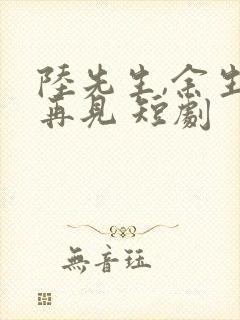 陸先生,余生
再見 短劇
無音珏